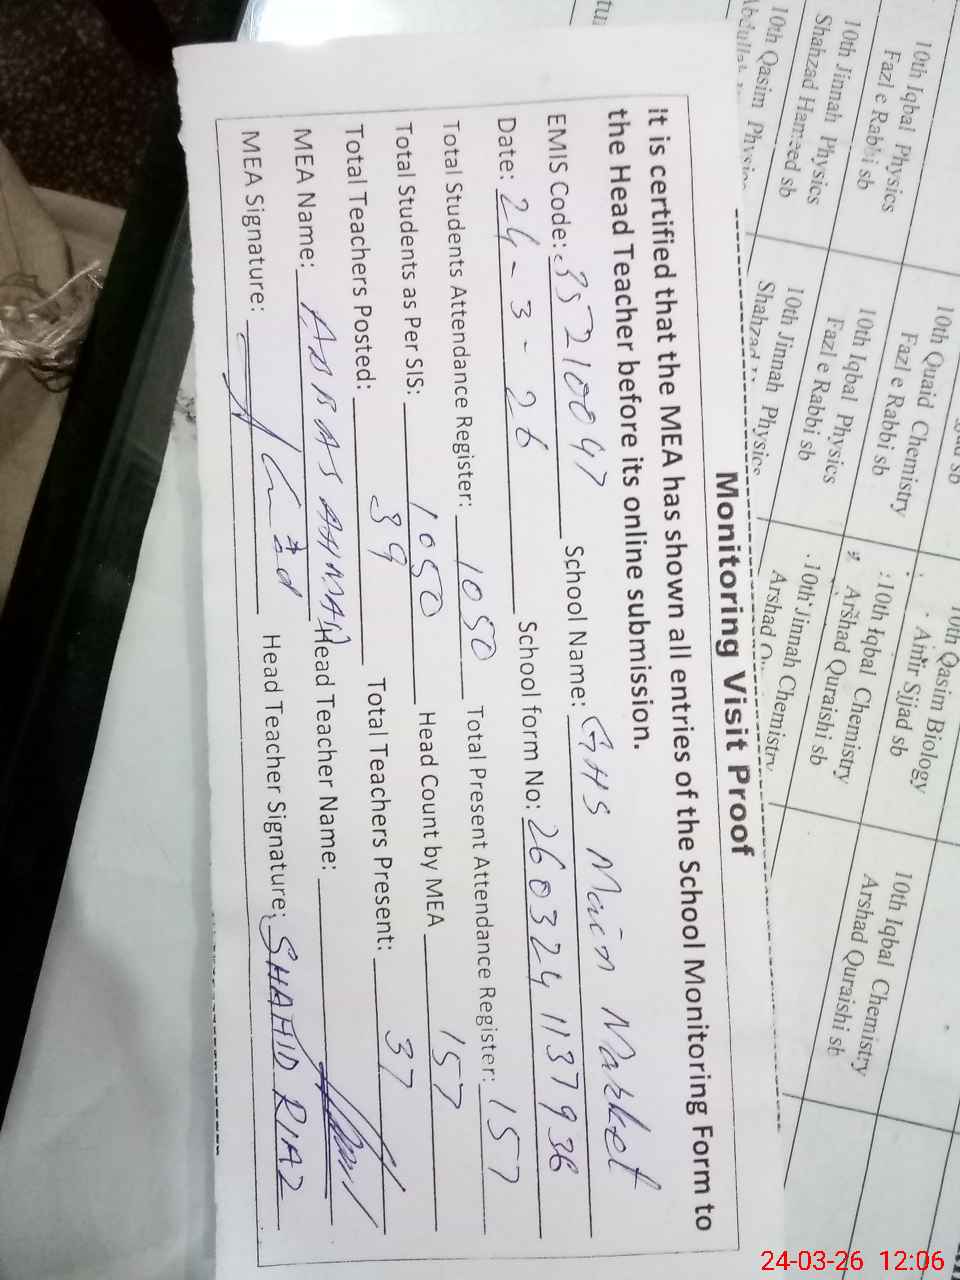 Monitoring Visit Proof
It is certified that the MEA has shown all entries of the School Monitoring Form to
the Head Teacher before its online submission.
EMIS Code: 35210047 School Name: GHS Main Market
Date: 24-3-26 School form No: 2603241137936
Total Students Attendance Register: 1050 Total Present Attendance Register: 157
Total Students as Per SIS: 1050 Head Count by MEA 157
Total Teachers Posted: 39 Total Teachers Present: 37
MEA Name: ABBAS AHMAD Head Teacher Name:
MEA Signature: Head Teacher Signature: SHAHID RIAZ
10th Iqbal Physics
Fazl e Rabbi sb
10th Jinnah Physics
Shahzad Hameed sb
10th Qasim Physics
10th Quaid Chemistry
Fazl e Rabbi sb
10th Iqbal Physics
Fazl e Rabbi sb
10th Jinnah Physics
10th Qasim Biology
Amir Sjjad sb
10th Iqbal Chemistry
Arshad Quraishi sb
10th Jinnah Chemistry
Arshad
10th Iqbal Chemistry
Arshad Quraishi sb
24-03-26 12:06